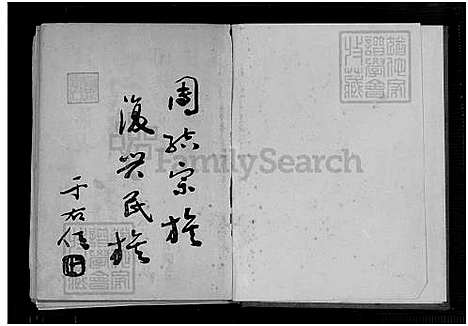 團結宗族
復興民族
于右任
FamilySearch